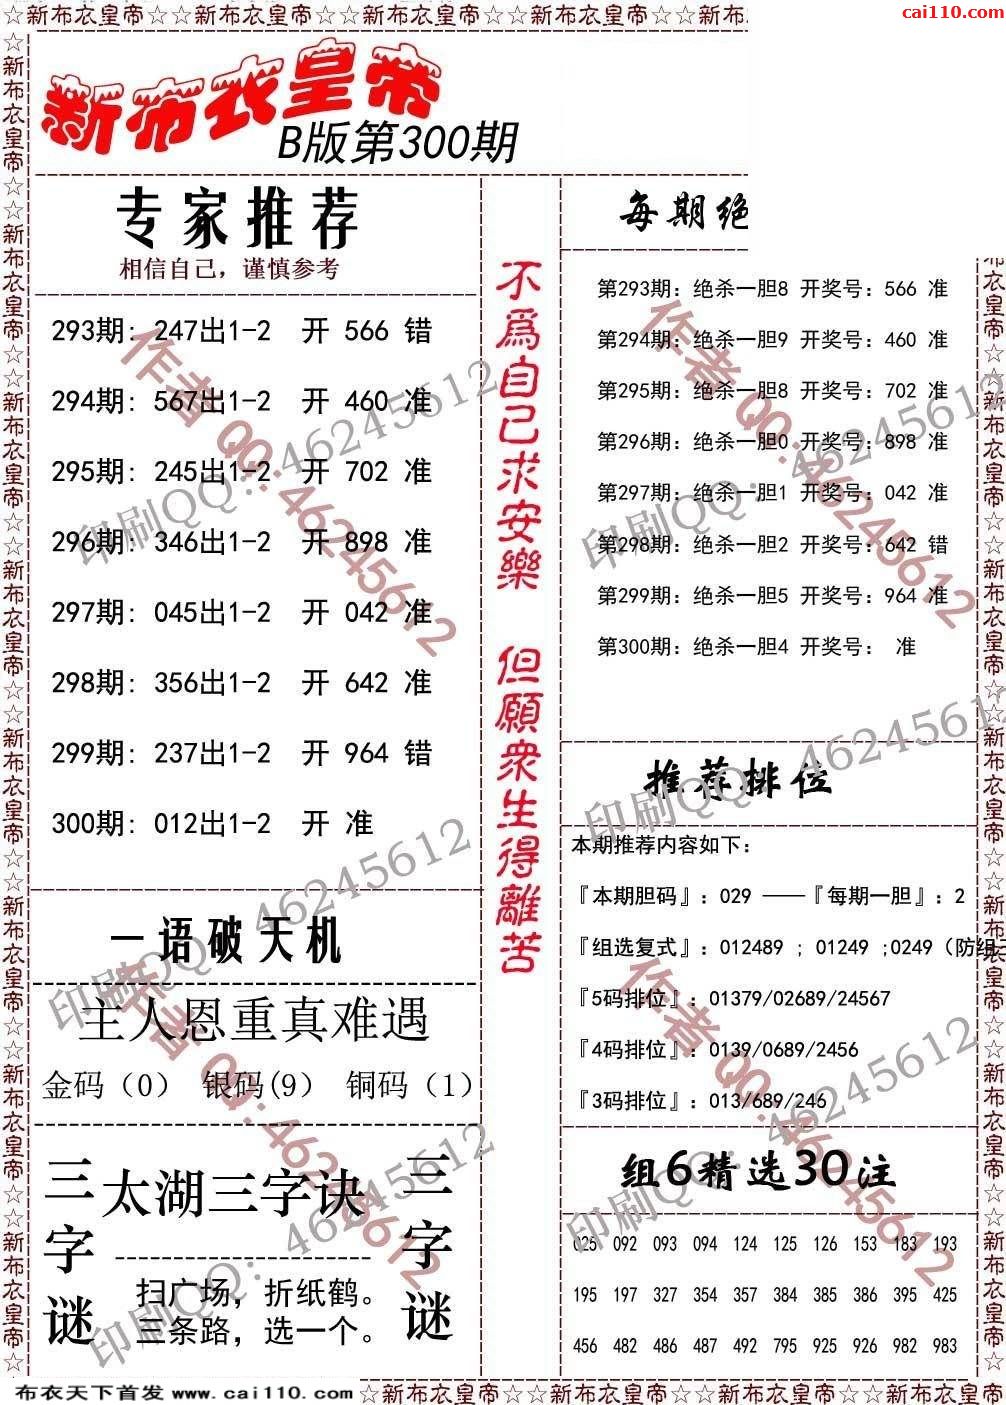 ☆新布衣皇帝☆☆新布衣皇帝☆☆新布衣皇帝☆☆新布衣皇帝☆☆新布
cai110.com
新布衣皇帝
B版第300期
专家推荐
相信自己，谨慎参考
293期: 247出1-2 开 566 错
294期: 567出1-2 开 460 准
295期: 245出1-2 开 702 准
296期: 346出1-2 开 898 准
297期: 045出1-2 开 042 准
298期: 356出1-2 开 642 准
299期: 237出1-2 开 964 错
300期: 012出1-2 开 准
一语破天机
主人恩重真难遇
金码（0） 银码(9） 铜码（1）
三字谜
太湖三字诀
扫广场，折纸鹤。
三条路，选一个。
三字谜
不爲自己求安樂 但願衆生得離苦
每期绝
第293期: 绝杀一胆8 开奖号: 566 准
第294期: 绝杀一胆9 开奖号: 460 准
第295期: 绝杀一胆8 开奖号: 702 准
第296期: 绝杀一胆0 开奖号: 898 准
第297期: 绝杀一胆1 开奖号: 042 准
第298期: 绝杀一胆2 开奖号: 642 错
第299期: 绝杀一胆5 开奖号: 964 准
第300期: 绝杀一胆4 开奖号: 准
推荐排位
本期推荐内容如下:
『本期胆码』: 029 ——『每期一胆』: 2
『组选复式』: 012489 ; 01249 ;0249（防组三
『5码排位』: 01379/02689/24567
『4码排位』: 0139/0689/2456
『3码排位』: 013/689/246
组6精选30注
025 092 093 094 124 125 126 153 183 193
195 197 327 354 357 384 385 386 395 425
456 482 486 487 492 795 925 926 982 983
作者 QQ: 46245612
印刷QQ: 46245612
作者 QQ: 46245612
印刷QQ: 46245612
印刷QQ: 46245612
作者 QQ: 46245612
印刷QQ: 46245612
作者 QQ: 46245612
印刷QQ: 46245612
印刷QQ: 46245612
☆新布衣皇帝☆☆新布衣皇帝☆☆新布衣皇帝☆☆新布衣皇帝☆☆新布衣皇帝☆☆新布衣皇帝☆☆新布衣皇帝☆☆新布衣皇帝☆
衣皇帝☆☆新布衣皇帝☆☆新布衣皇帝☆☆新布衣皇帝☆☆新布衣皇帝☆☆新布衣皇帝☆☆新布衣皇帝☆
布衣天下首发 www.cai110.com
☆新布衣皇帝☆☆新布衣皇帝☆☆新布衣皇帝☆☆新布衣皇帝☆